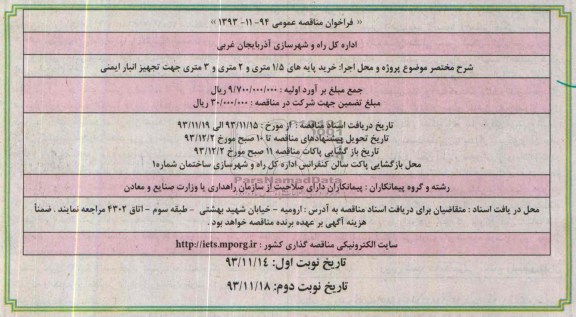 « فراخوان مناقصه عمومی ۹۴- ۱۱- ۱۳۹۳ »
اداره کل راه و شهرسازی آذربایجان غربی
شرح مختصر موضوع پروژه و محل اجرا: خرید پایه های ۱/۵ متری و ۲ متری و ۳ متری جهت تجهیز انبار ایمنی
جمع مبلغ بر آورد اولیه : ۹/۷۰۰/۰۰۰/۰۰۰ ریال
مبلغ تضمین جهت شرکت در مناقصه : ۳۰/۰۰۰/۰۰۰ ریال
تاریخ دریافت اسناد مناقصه : از مورخ : ۹۳/۱۱/۱۵ الی ۹۳/۱۱/۱۹
تاریخ تحویل پیشنهادهای مناقصه تا ۱۰ صبح مورخ ۹۳/۱۲/۲
تاریخ باز گشایی پاکات مناقصه ۱۱ صبح مورخ ۹۳/۱۲/۲
محل بازگشایی پاکت سالن کنفرانس اداره کل راه و شهرسازی ساختمان شماره۱
ParsNamadData
رشته و گروه پیمانکاران : پیمانکاران دارای صلاحیت از سازمان راهداری یا وزارت صنایع و معادن
محل در یافت اسناد : متقاضیان برای دریافت اسناد مناقصه به آدرس : ارومیه - خیابان شهید بهشتی - طبقه سوم - اتاق ۴۳۰۲ مراجعه نمایند . ضمناً
هزینه آگهی بر عهده برنده مناقصه خواهد بود .
سایت الکترونیکی مناقصه گذاری کشور : http://iets.mporg.ir
تاریخ نوبت اول: ۹۳/۱۱/۱۴
تاریخ نوبت دوم: ۹۳/۱۱/۱۸